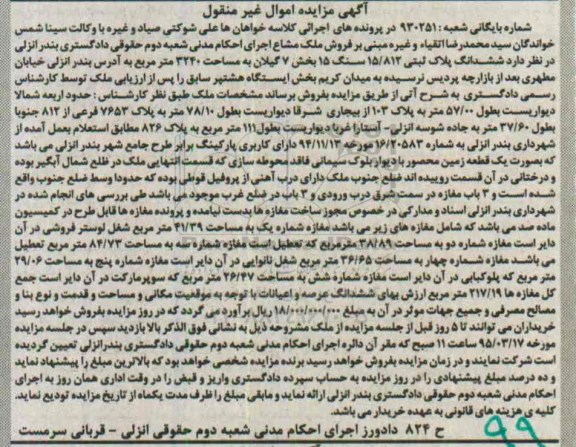 آگهی مزایده اموال غیر منقول
شماره بایگانی شعبه : ۹۳۰۲۵۱ در پرونده های اجرائی کلاسه خواهان ها علی شوکتی صیاد و غیره با وکالت سینا شمس
خواندگان سید محمدرضا اتقیاء و غیره مبنی بر فروش ملک مشاع اجرای احکام مدنی شعبه دوم حقوقی دادگستری بندر انزلی
در نظر دارد ششدانگ پلاک ثبتی ۱۵/۸۱۲ سنگ ۱۵ بخش ۷ گیلان به مساحت ۳۲۴۰ متر مربع به آدرس بندر انزلی خیابان
مطهری بعد از بازارچه پردیس نرسیده به میدان کریم بخش ایستگاه هشتپر سابق را پس از ارزیابی ملک توسط کارشناس
رسمی دادگستری به شرح آتی از طریق مزایده بفروش برساند مشخصات ملک طبق نظر کارشناس : حدود اربعه شمالا
دیواریست بطول ۵۷/۰۰ متر به پلاک ۱۰۳ از بیجاری شرقا دیواریست بطول ۷۸/۱۰ متر به پلاک ۷۶۵۳ فرعی از ۸۱۲ جنوبا
بطول ۳۷/۶۰ متر به جاده شوسه انزلی - آستارا غربا دیواریست بطول ۱۱۱ متر مربع به پلاک ۸۲۶ مطابق استعلام بعمل آمده از
شهرداری بندر انزلی به شماره ۱۶۲۰۵۸۳ مورخه ۹۴/۱۱/۱۳ دارای کاربری پارکینگ برابر طرح جامع شهر بندر انزلی می باشد
که بصورت یک قطعه زمین محصور با دیوار بلوک سیمانی فاقد محوطه سازی که قسمت انتهایی ملک در ظلع شمال آبگیر بوده
و درختانی در آن قسمت روییده اند ضلع جنوب ملک دارای درب آهنی از پروفیل قوطی بوده که حدودا وسط ضلع جنوب واقع
شده است و ۳ باب مغازه در سمت شرق درب ورودی و ۳ باب در ضلع غرب موجود می باشد طی بررسی های انجام شده در
شهرداری بندر انزلی اسناد و مدارکی در خصوص مجوز ساخت مغازه ها بدست نیامده و پرونده مغازه ها قابل طرح در کمیسیون
ماده صد می باشد که شامل مغازه های زیر می باشد مغازه شماره یک به مساحت ۴۱/۳۹ متر مربع شغل لوستر فروشی در آن
دایر است مغازه شماره دو به مساحت ۳۸/۸۹ متر مربع که تعطیل است مغازه شماره سه به مساحت ۸۴/۷۳ متر مربع تعطیل
می باشد مغازه شماره چهار به مساحت ۳۶/۶۵ متر مربع شغل نانوایی در آن دایر است مغازه شماره پنج به مساحت ۲۹/۰۶
متر مربع که پلوکبابی در آن دایر است مغازه شماره شش به مساحت ۲۶/۴۷ متر مربع که سوپرمارکت در آن دایر است جمع
کل مغازه ها ۲۱۷/۱۹ متر مربع ارزش بهای ششدانگ عرصه و اعیانات با توجه به موقعیت مکانی و مساحت و قدمت و نوع بنا و
مصالح مصرفی و جمیع جهات موثر در آن به مبلغ ۱۸/۰۰۰/۰۰۰/۰۰۰ ریال برآورد می گردد که در روز مزایده بفروش خواهد رسید
خریداران می توانند تا ۵ روز قبل از جلسه مزایده از ملک مشروحه ذیل به نشانی فوق الذکر بالا بازدید سپس در جلسه مزایده
مورخه ۹۵/۰۳/۱۷ ساعت ۱۱ صبح که مقر آن دائره اجرای احکام مدنی شعبه دوم حقوقی دادگستری بندرانزلی تعیین گردیده
است شرکت نمایند و در زمان مزایده بفروش خواهد رسید برنده مزایده شخصی خواهد بود که بالاترین مبلغ را پیشنهاد نماید
و ده درصد مبلغ پیشنهادی را در روز مزایده به حساب سپرده دادگستری واریز و قبض را در وقت اداری همان روز به اجرای
احکام مدنی شعبه دوم حقوقی دادگستری بندر انزلی ارائه نماید و مابقی مبلغ را ظرف مدت یکماه از تاریخ مزایده تودیع نماید.
کلیه ی هزینه های قانونی به عهده خریدار می باشد.
ح ۸۲۴ دادورز اجرای احکام مدنی شعبه دوم حقوقی انزلی - قربانی سرمست
۹۹